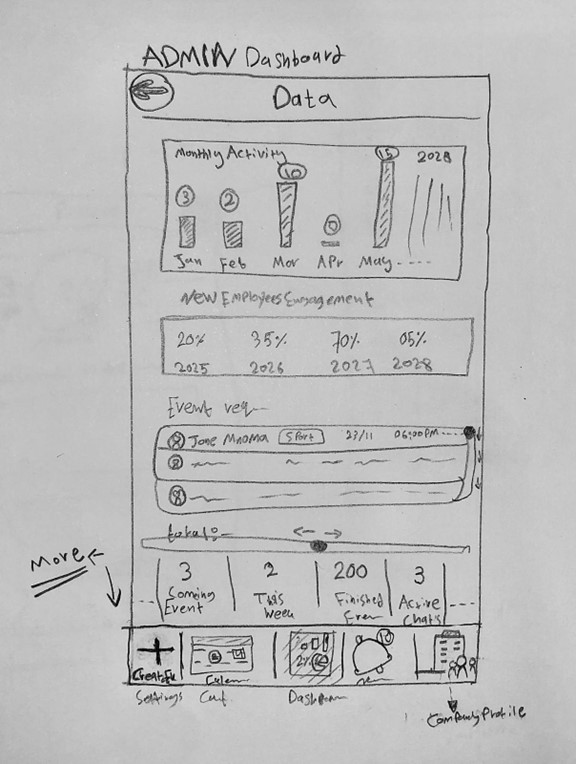 ADMIN Dashboard
Data
Monthly Activity
2028
3 2 10 0 15
Jan Feb Mar APr May ----
New Employees Engagement
20% 35% 70% 05%
2025 2026 2027 2028
Event req
Jane Mnoma Sport 23/11 06:00PM ----
total:
More
3 2 200 3
Coming Event
This Week
Finished
Active Chats
10
Settings
Company Profile